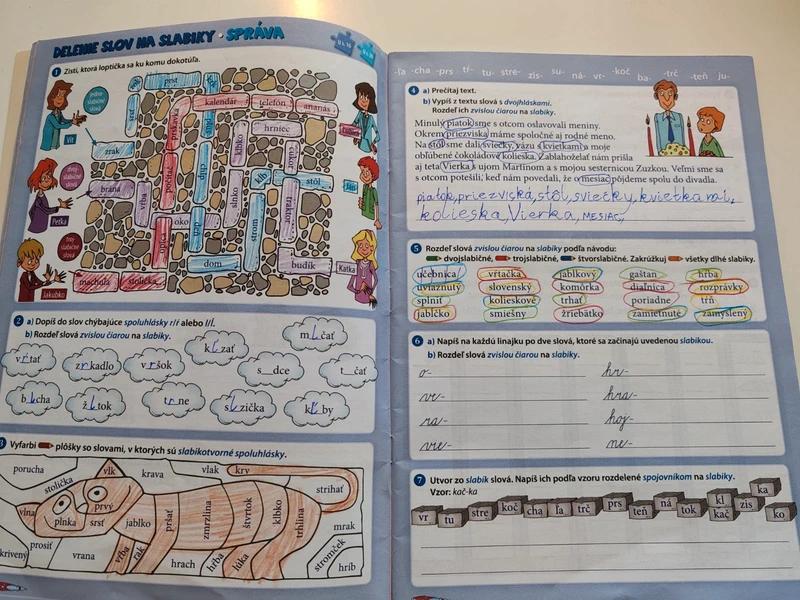 DELENIE SLOV NA SLABIKY • SPRÁVA
1 Zisti, ktorá loptička sa ku komu dokotúľa.
jedno slabičné slová
Vít
dvoj slabičné slová
Peťka
troj slabičné slová
Jakubko
Katka
pest
kalendár
telefón
ananás
prskavka
hrniec
zrak
brána
vŕba
oko
slnko
kĺb
stôl
strom
traktor
dom
budík
machuľa
stolička
2 a) Dopíš do slov chýbajúce spoluhlásky r/ŕ alebo l/ĺ.
b) Rozdeľ slová zvislou čiarou na slabiky.
vŕtať
zrkadlo
vŕšok
kĺzať
mlčať
s__dce
t__čať
blcha
žltok
trne
slzička
kĺby
3 Vyfarbi plôšky so slovami, v ktorých sú slabikotvorné spoluhlásky.
porucha
stolička
vlk
krava
vlak
krv
strihať
vlna
plnka
prvý
srsť
jabĺko
pršať
zmrzlina
štvrtok
klbko
trhlina
mrak
krivený
prosiť
vrana
vŕba
rak
hrach
hrba
lúka
stromček
hríb
-ľa -cha -prs tŕ- tu- stre- zis- su- ná- vr- -koč ba- -trč -teň ju-
4 a) Prečítaj text.
b) Vypíš z textu slová s dvojhláskami.
Rozdeľ ich zvislou čiarou na slabiky.
Minulý piatok sme s otcom oslavovali meniny.
Okrem priezviska máme spoločné aj rodné meno.
Na stôl sme dali sviečky, vázu s kvietkami a moje
obľúbené čokoládové kolieska. Zablahoželať nám prišla
aj teta Vierka s ujom Martinom a s mojou sesternicou Zuzkou. Veľmi sme sa
s otcom potešili, keď nám povedali, že o mesiac pôjdeme spolu do divadla.
piatok, priezviská, stôl, sviečky, kvietkami,
kolieska, Vierka, MESIAC,
5 Rozdeľ slová zvislou čiarou na slabiky podľa návodu:
dvojslabičné, trojslabičné, štvorslabičné. Zakrúžkuj všetky dlhé slabiky.
učebnica vŕtačka jabĺkový gaštan hŕba
uviaznutý slovenský komôrka diaľnica rozprávky
splniť kolieskové trhať poriadne tŕň
jabĺčko smiešny žriebätko zamietnuté zamyslený
6 a) Napíš na každú linajku po dve slová, ktoré sa začínajú uvedenou slabikou.
b) Rozdeľ slová zvislou čiarou na slabiky.
o-
hr-
vr-
hra-
ra-
hoj-
vre-
ne-
7 Utvor zo slabík slová. Napíš ich podľa vzoru rozdelené spojovníkom na slabiky.
Vzor: kač-ka
vr tu stre koč cha ľa trč prs teň ná tok kl kač zis ka ko